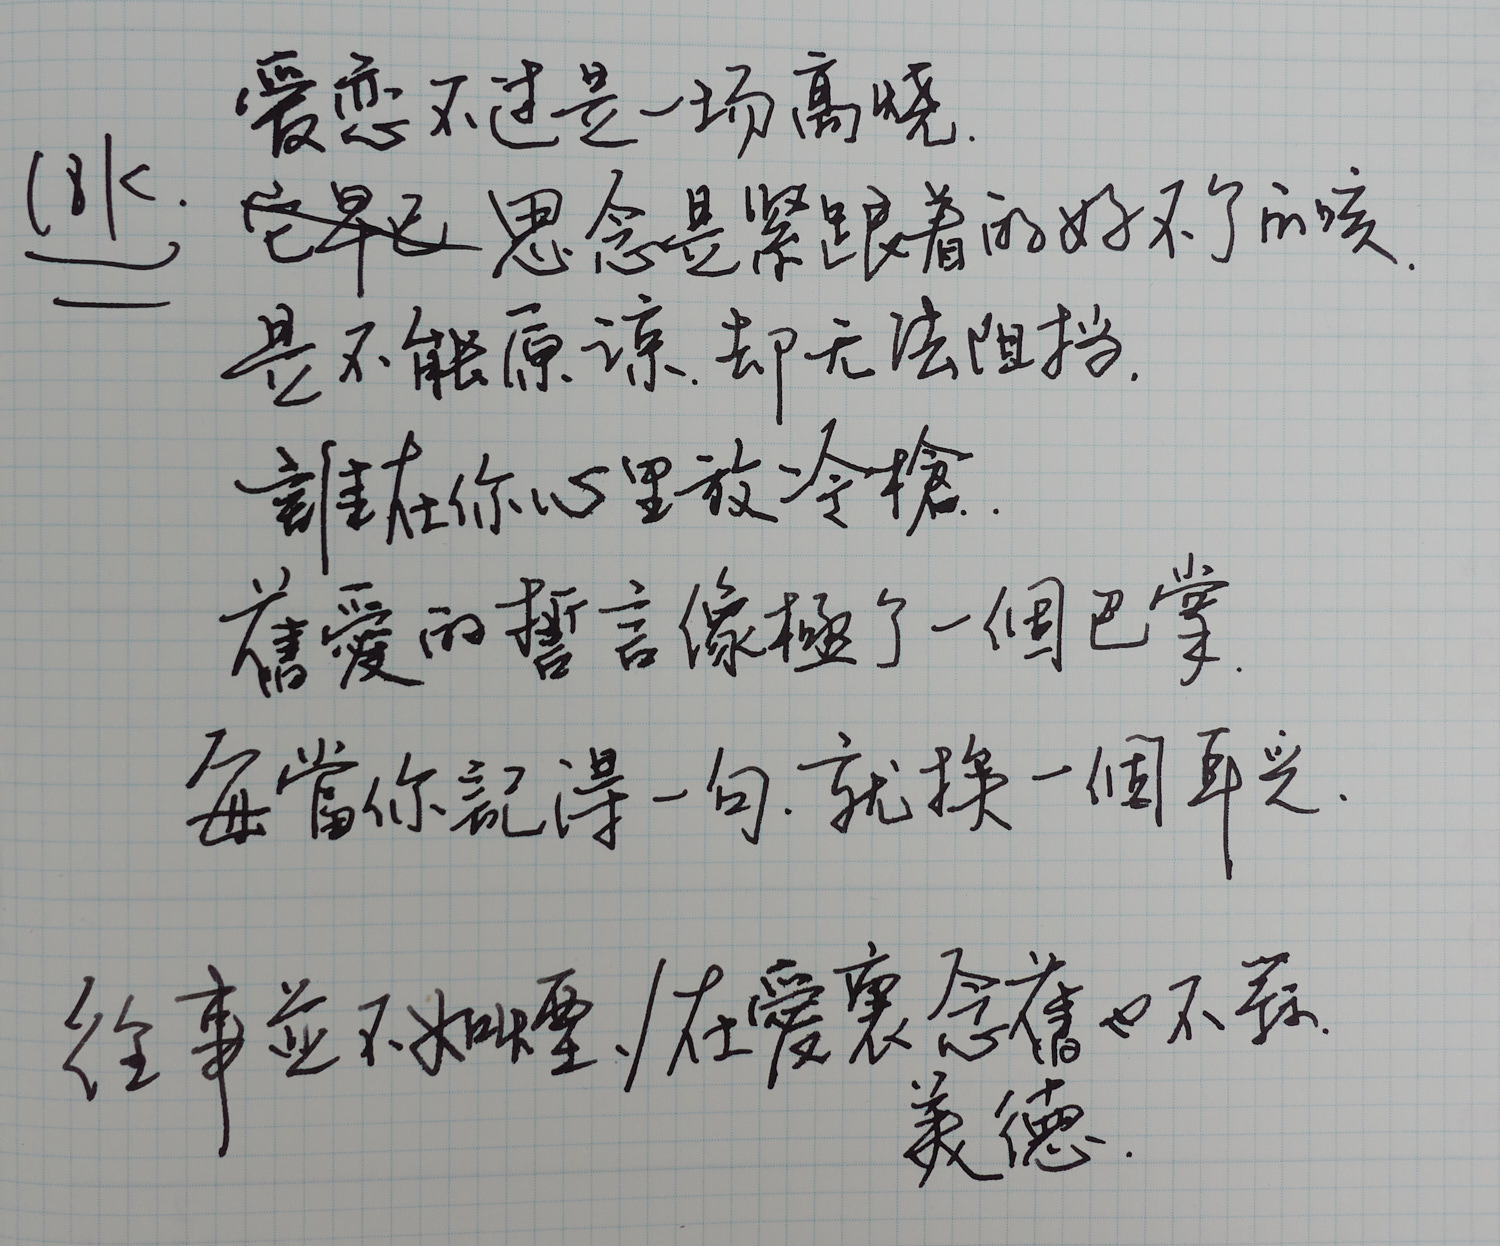 愛恋不过是一场高烧.
(8K. 它早已 思念是紧跟着的好不了的咳.
是不能原谅.却无法阻挡.
誰在你心里放冷槍..
舊愛的誓言像極了一個巴掌.
每當你記得一句.就挨一個耳光.
往事並不如煙./在愛裏念舊也不算.
美德.